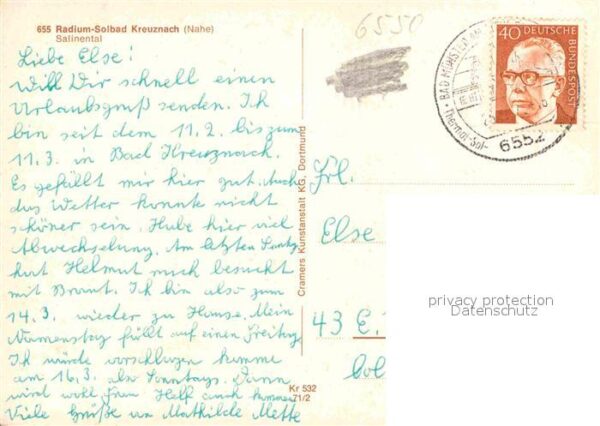 655 Radium-Solbad Kreuznach (Nahe)
Salinental
6550
Liebe Else!
Will Dir schnell einen
Urlaubsgruß senden. Ich
bin seit dem 11.2. bis zum
11.3. in Bad Kreuznach.
Es gefällt mir hier gut. Auch
das Wetter konnte nicht
sköner sein. Habe hier viel
Abwechselung. Am letzten Sonntg
hat Helmut mich besucht
mit Braut. Ich bin also zum
14.3. wieder zu Hause. Mein
Namenstag fällt auf einen Freitag
Ich würde vorschlagen komme
am 16.3. als Sonntags. Dann
wird wohl Frau Half auch kommen
Viele Grüße von Mathilde Mette
Cramers Kunstanstalt KG, Dortmund
Kr 532
71/2
40
DEUTSCHE
BUNDESPOST
BAD MÜNSTER AM
Thermal-Sol-
6552
Frl.
Else
43 E.
privacy protection
Datenschutz